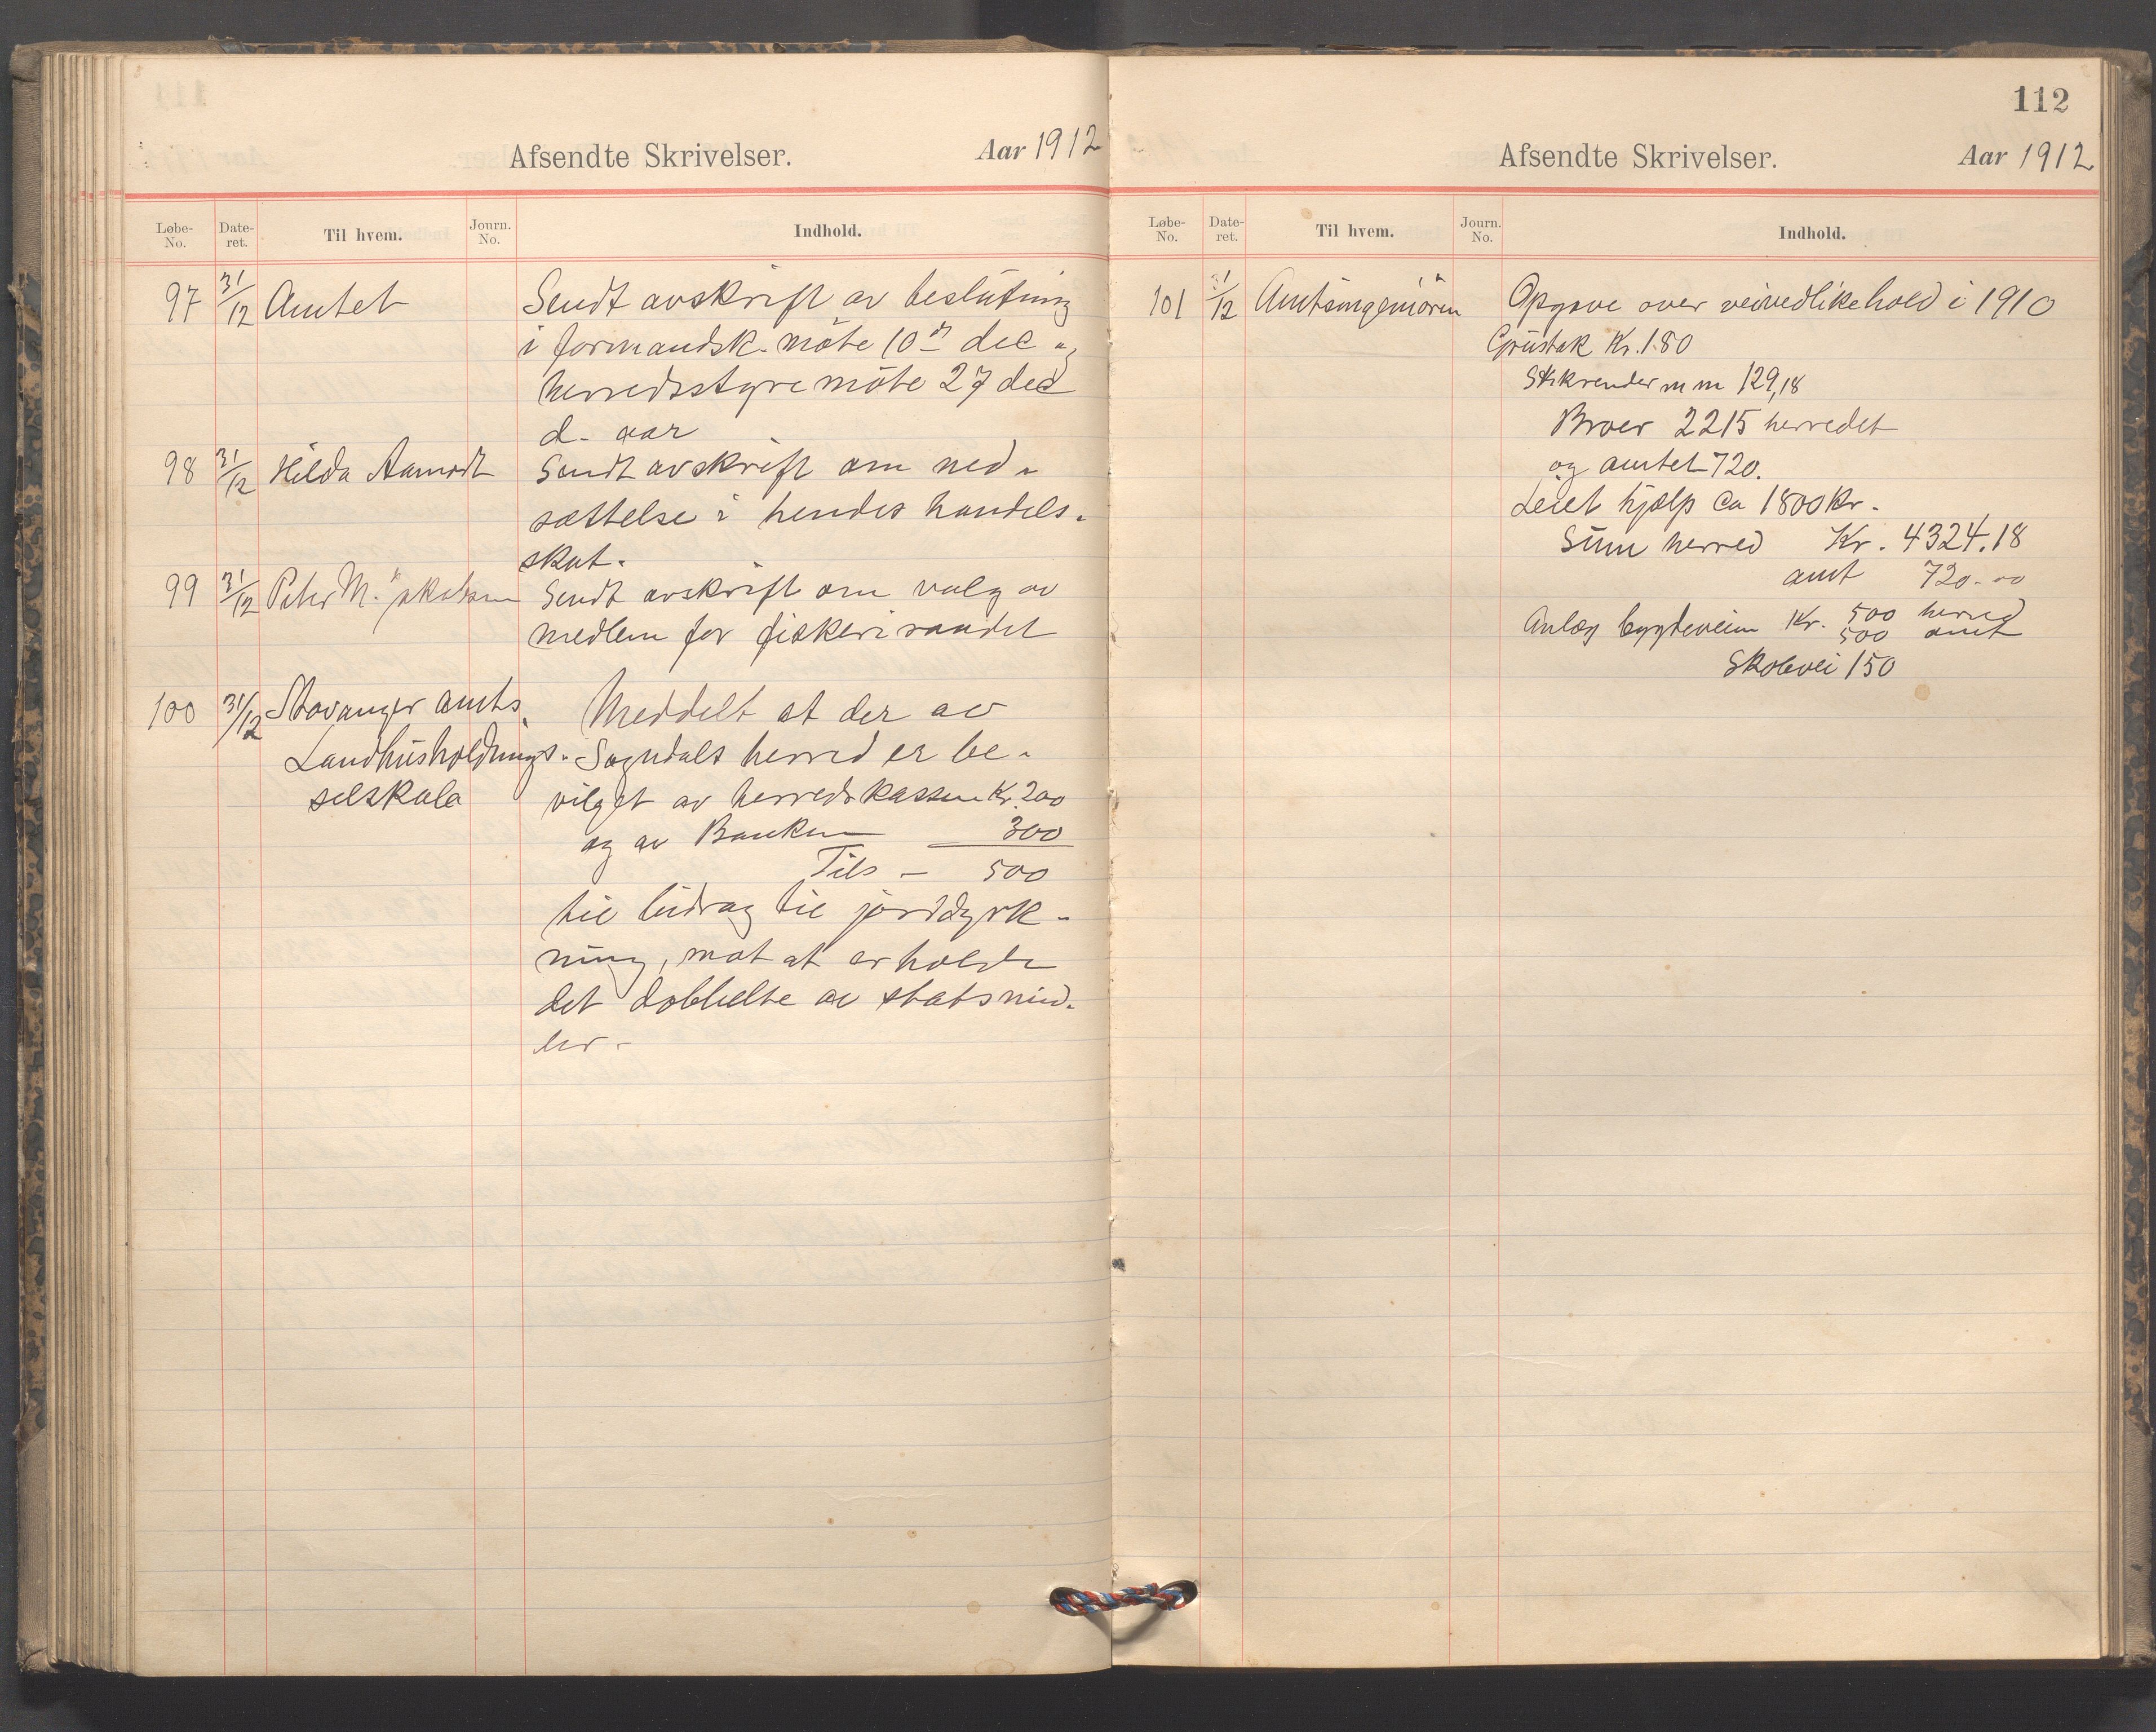 Afsendte Skrivelser. Aar 1912
Løbe-No. Date-ret. Til hvem. Journ. No. Indhold.
97 31/12 Amtet Sendt avskrift av beslutning
i formandsk. møte 10de dec og
herredsstyremøte 27 dec
d. aar
98 31/12 Hilda Aamodt Sendt avskrift om ned-
sættelse i hendes handels-
skat.
99 31/12 Peter M. Sendt avskrift om valg av
medlem for fiskeriraadet
100 31/12 Stavanger amts Meddelt at der av
Landhusholdnings- Sogndals herred er be-
selskab vilget av herredskassen Kr. 200
og av Banken 300
Tils – 500
til bidrag til jorddyrk-
ning, mot at erholde
det dobbelte av statsmid-
ler -
112
Afsendte Skrivelser. Aar 1912
Løbe-No. Date-ret. Til hvem. Journ. No. Indhold.
101 31/12 Amtsingeniøren Opgave over veivedlikehold i 1910
Grustak Kr. 180
Stikrender m m 129,18
Broer 2215 herredet
og amtet 720.
Leiet hjælp ca 1800 Kr.
Sum herred Kr. 4324.18
amt 720.00
Anlæg bygdeveien Kr. 500 herred
500 amt
Skolevei 150